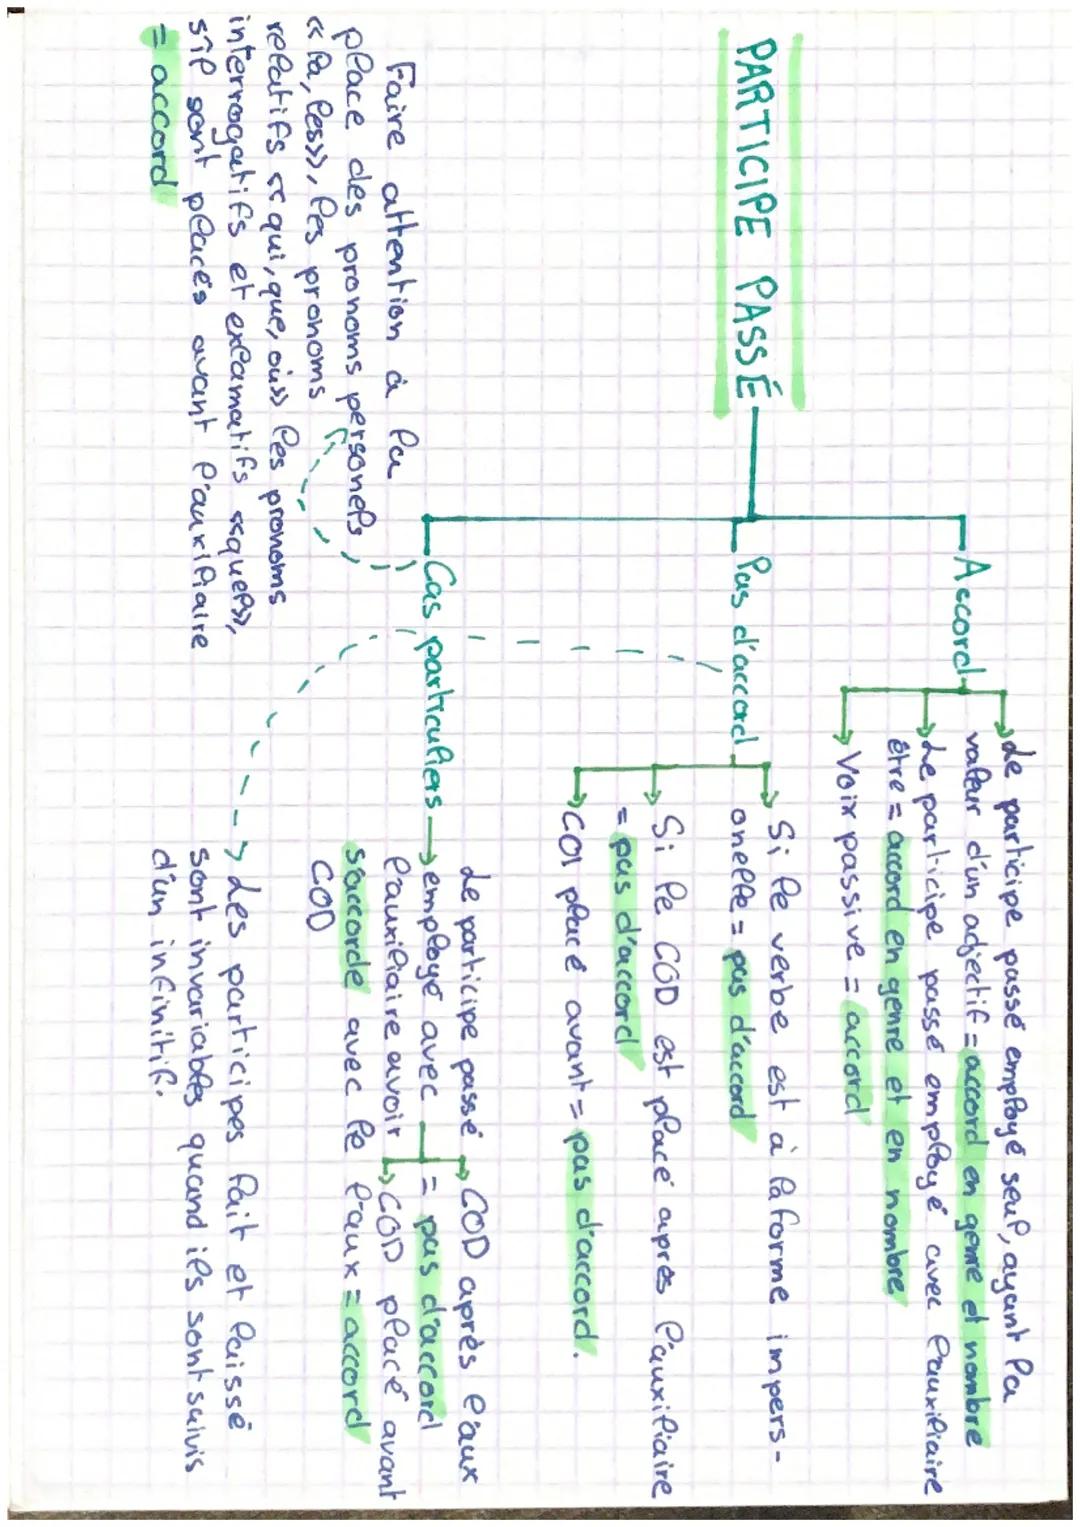 PARTICIPE PASSÉ
Accord
Le participe passé employé seul, ayant la
valeur d'un adjectif = accord en genre et nombre
Le participe passé employé avec l'auxiliaire
être = accord en genre et en nombre
Voix passive = accord
Pas d'accord
Si le verbe est à la forme impers-
onelle = pas d'accord
Si le COD est placé après l'auxiliaire
= pas d'accord
COI placé avant = pas d'accord.
Cas particuliers
Le participe passé
employé avec
l'auxiliaire avoir
s'accorde avec le
COD
COD après l'aux
= pas d'accord
COD placé avant
l'aux = accord
Les participes fait et laissé
sont invariables quand ils sont suivis
d'un infinitif.
Faire attention à la
place des pronoms personels
« la, les», les pronoms
relatifs « qui, que, où» les pronoms
interrogatifs et exlamatifs «quels»,
s'il sont placés avant l'auxiliaire
= accord